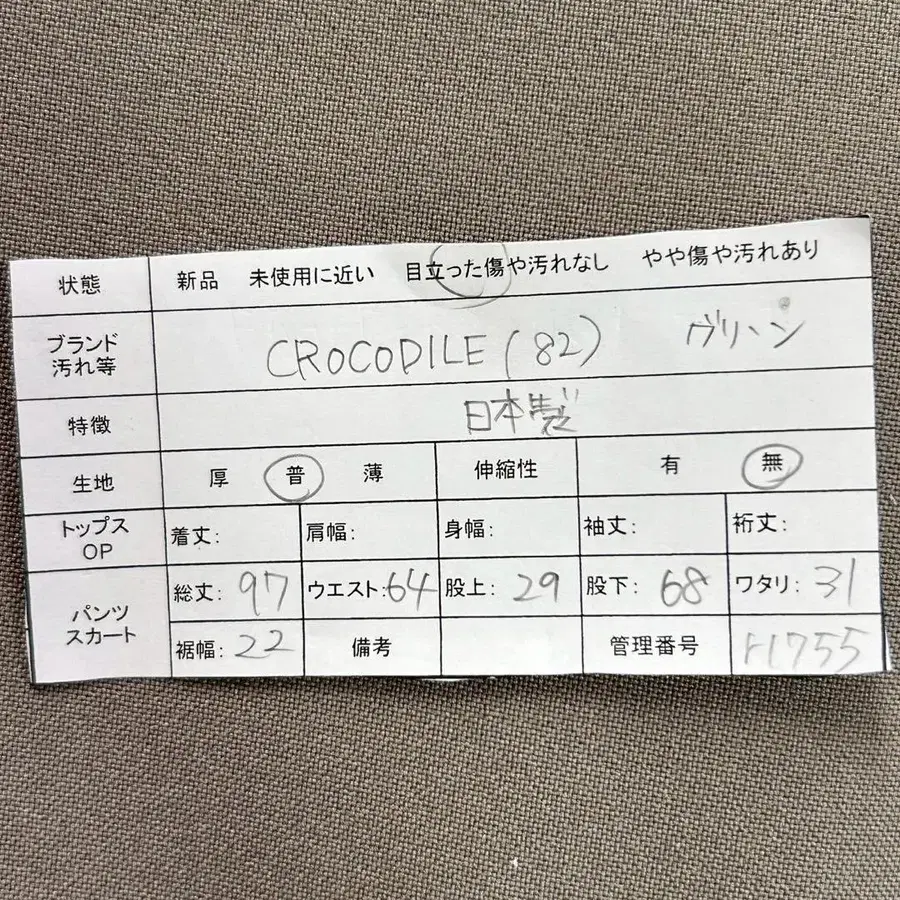 状態 新品 未使用に近い 目立った傷や汚れなし やや傷や汚れあり
ブランド
汚れ等 CROCODILE (82)
特徴 日本製
生地 厚 普 薄 伸縮性 有 無
トップス
OP 着丈: 肩幅: 身幅: 袖丈: 裄丈:
パンツ
スカート 総丈: 97 ウエスト: 64 股上: 29 股下: 68 ワタリ: 31
裾幅: 22 備考 管理番号 r1755